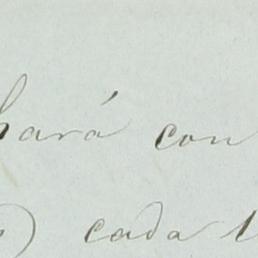 hará con
cada